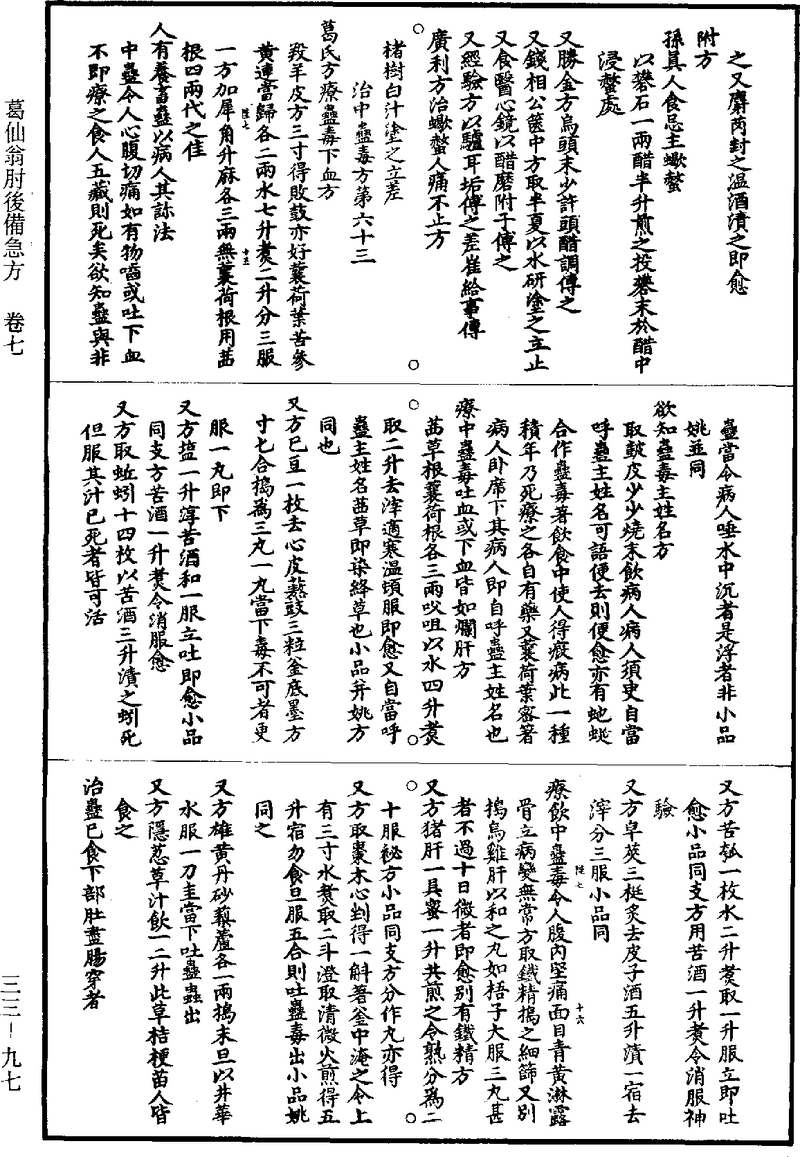 葛仙翁肘後備急方　卷七
之又麝芮封之溫酒漬之即愈
附方
孫真人食忌主蠍螫
以礬石一兩醋半升煎之投礬末於醋中
浸螫處
又勝金方烏頭末少許頭醋調傅之
又錢相公篋中方取半夏以水研塗之立止
又食醫心鏡以醋磨附子傅之
又經驗方以驢耳垢傅之差崔給事傳
廣利方治蠍螫人痛不止方
楮樹白汁塗之立差
治中蠱毒方第六十三
葛氏方療蠱毒下血方
羖羊皮方三寸得敗鼓亦好蘘荷葉苦參
黃連當歸各二兩水七升煮二升分三服
陸七
十五
一方加犀角升麻各三兩無蘘荷根用茜
根四兩代之佳
人有養畜蠱以病人其診法
中蠱令人心腹切痛如有物嚙或吐下血
不即療之食人五藏則死矣欲知蠱與非
蠱當令病人唾水中沉者是浮者非小品
姚並同
欲知蠱毒主姓名方
取鼓皮少少燒末飲病人病人須臾自當
呼蠱主姓名可語便去則便愈亦有蛇蜒
合作蠱毒著飲食中使人得瘕病此一種
積年乃死療之各自有藥又蘘荷葉密著
病人臥席下其病人即自呼蠱主姓名也
療中蠱毒吐血或下血皆如爛肝方
茜草根蘘荷根各三兩㕮咀以水四升煮
取二升去滓適寒溫頓服即愈又自當呼
蠱主姓名茜草即染絳草也小品并姚方
同也
又方巴豆一枚去心皮熬豉三粒釜底墨方
寸匕合搗為三丸一丸當下毒不可者更
服一丸即下
又方鹽一升淳苦酒和一服立吐即愈小品
同支方苦酒一升煮令消服愈
又方取蚯蚓十四枚以苦酒三升漬之蚓死
但服其汁已死者皆可活
又方苦瓠一枚水二升煮取一升服立即吐
愈小品同支方用苦酒一升煮令消服神
驗
又方皁莢三梃炙去皮子酒五升漬一宿去
滓分三服小品同
療飲中蠱毒令人腹內堅痛面目青黃淋露
陸七
十六
骨立病變無常方取鐵精搗之細篩又別
搗烏雞肝以和之丸如梧子大服三丸甚
者不過十日微者即愈別有鐵精方
又方猪肝一具蜜一升共煎之令熟分為二
十服祕方小品同支方分作丸亦得
又方取棗木心剉得一斛著釜中淹之令上
有三寸水煮取二斗澄取清微火煎得五
升宿勿食旦服五合則吐蠱毒出小品姚
同之
又方雄黃丹砂藜蘆各一兩搗末旦以井華
水服一刀圭當下吐蠱蟲出
又方隱荵草汁飲一二升此草桔梗苗人皆
食之
治蠱已食下部肚盡腸穿者
三三－九七